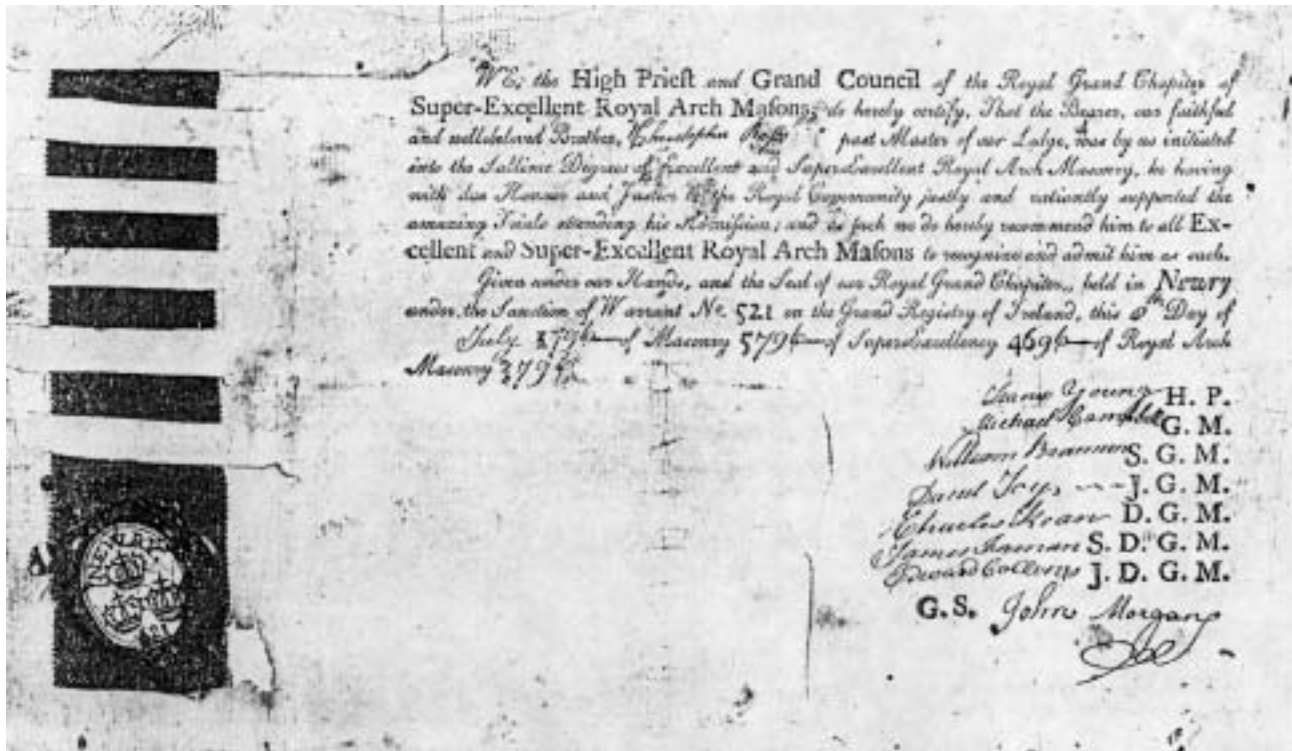 WE, the High Priest and Grand Council of the Royal Grand Chapiter of
Super-Excellent Royal Arch Masons, do hereby certify, That the Bearer, our faithful
and well-beloved Brother, Christopher past Master of our Lodge, was by us initiated
into the Sublime Degrees of Excellent and Super-Excellent Royal Arch Masonry, he having
with due Honour and Justice to the Royal Community justly and valiantly supported the
amazing Trials attending his Admission; and as such we do hereby recommend him to all Ex-
cellent and Super-Excellent Royal Arch Masons to recognize and admit him as such.
Given under our Hands, and the Seal of our Royal Grand Chapiter, held in Newry
under the Sanction of Warrant No. 521 on the Grand Registry of Ireland, this th Day of
July 1796 of Masonry 5796 of Super-Excellency 4696 of Royal Arch
Masonry 3796
Young H. P.
Michael Campbell G. M.
William Brannon S. G. M.
J. G. M.
Charles D. G. M.
James S. D. G. M.
Edward Collins J. D. G. M.
G. S. John Morgan
NEWRY